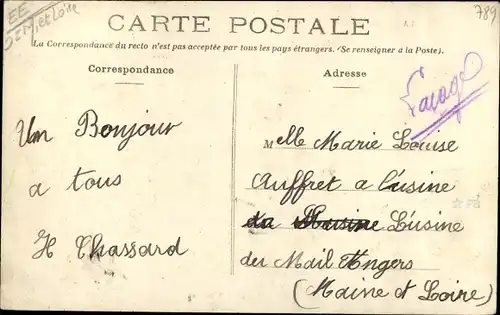 EE
789
CARTE POSTALE
La Correspondance du recto n'est pas acceptée par tous les pays étrangers. (Se renseigner à la Poste).
Correspondance
Un Bonjour
a tous
H Chassard
Adresse
Melle Marie Louise
Auffret a l'usine
L'usine
du Mail Angers
(Maine et Loire)